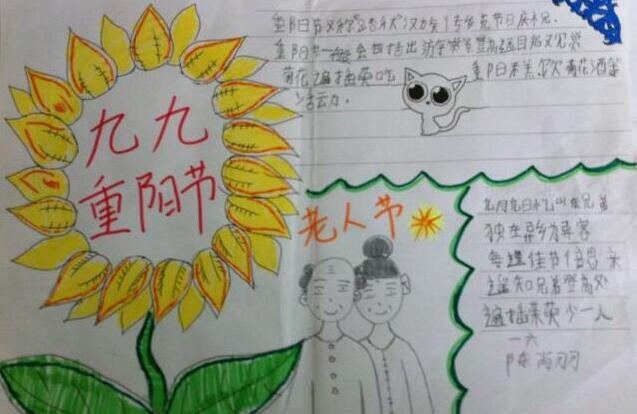 九九
重阳节
重阳节又称踏秋汉族传统节日庆祝
重阳节一般会包括出游赏景登高远目兆观赏
菊花遍插茱吃重阳米羔饮菊花酒等
活云力.
老人节
九月九日忆山东兄弟
独在异乡为异客
每逢佳节倍思亲
遥知兄弟登高处
遍插茱萸少一人
一六
陈